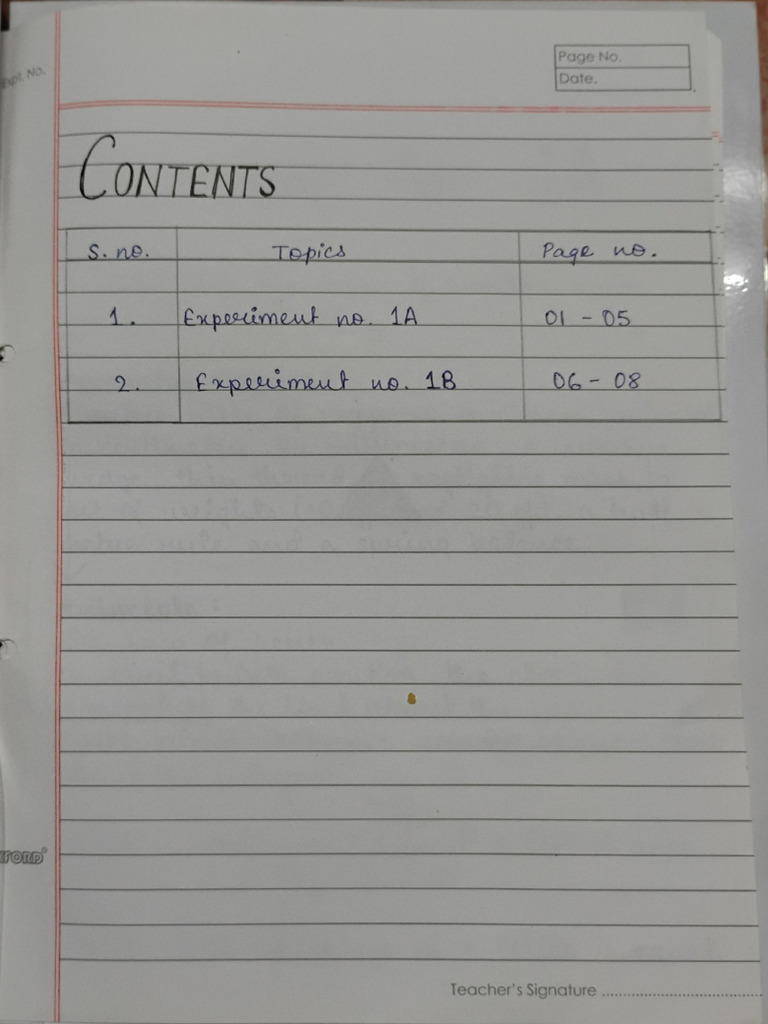 Expt. No.
Page No.
Date.
CONTENTS
S. no. Topics Page no.
1. Experiment no. 1A 01 - 05
2. Experiment no. 1B 06 - 08
Teacher's Signature ................................